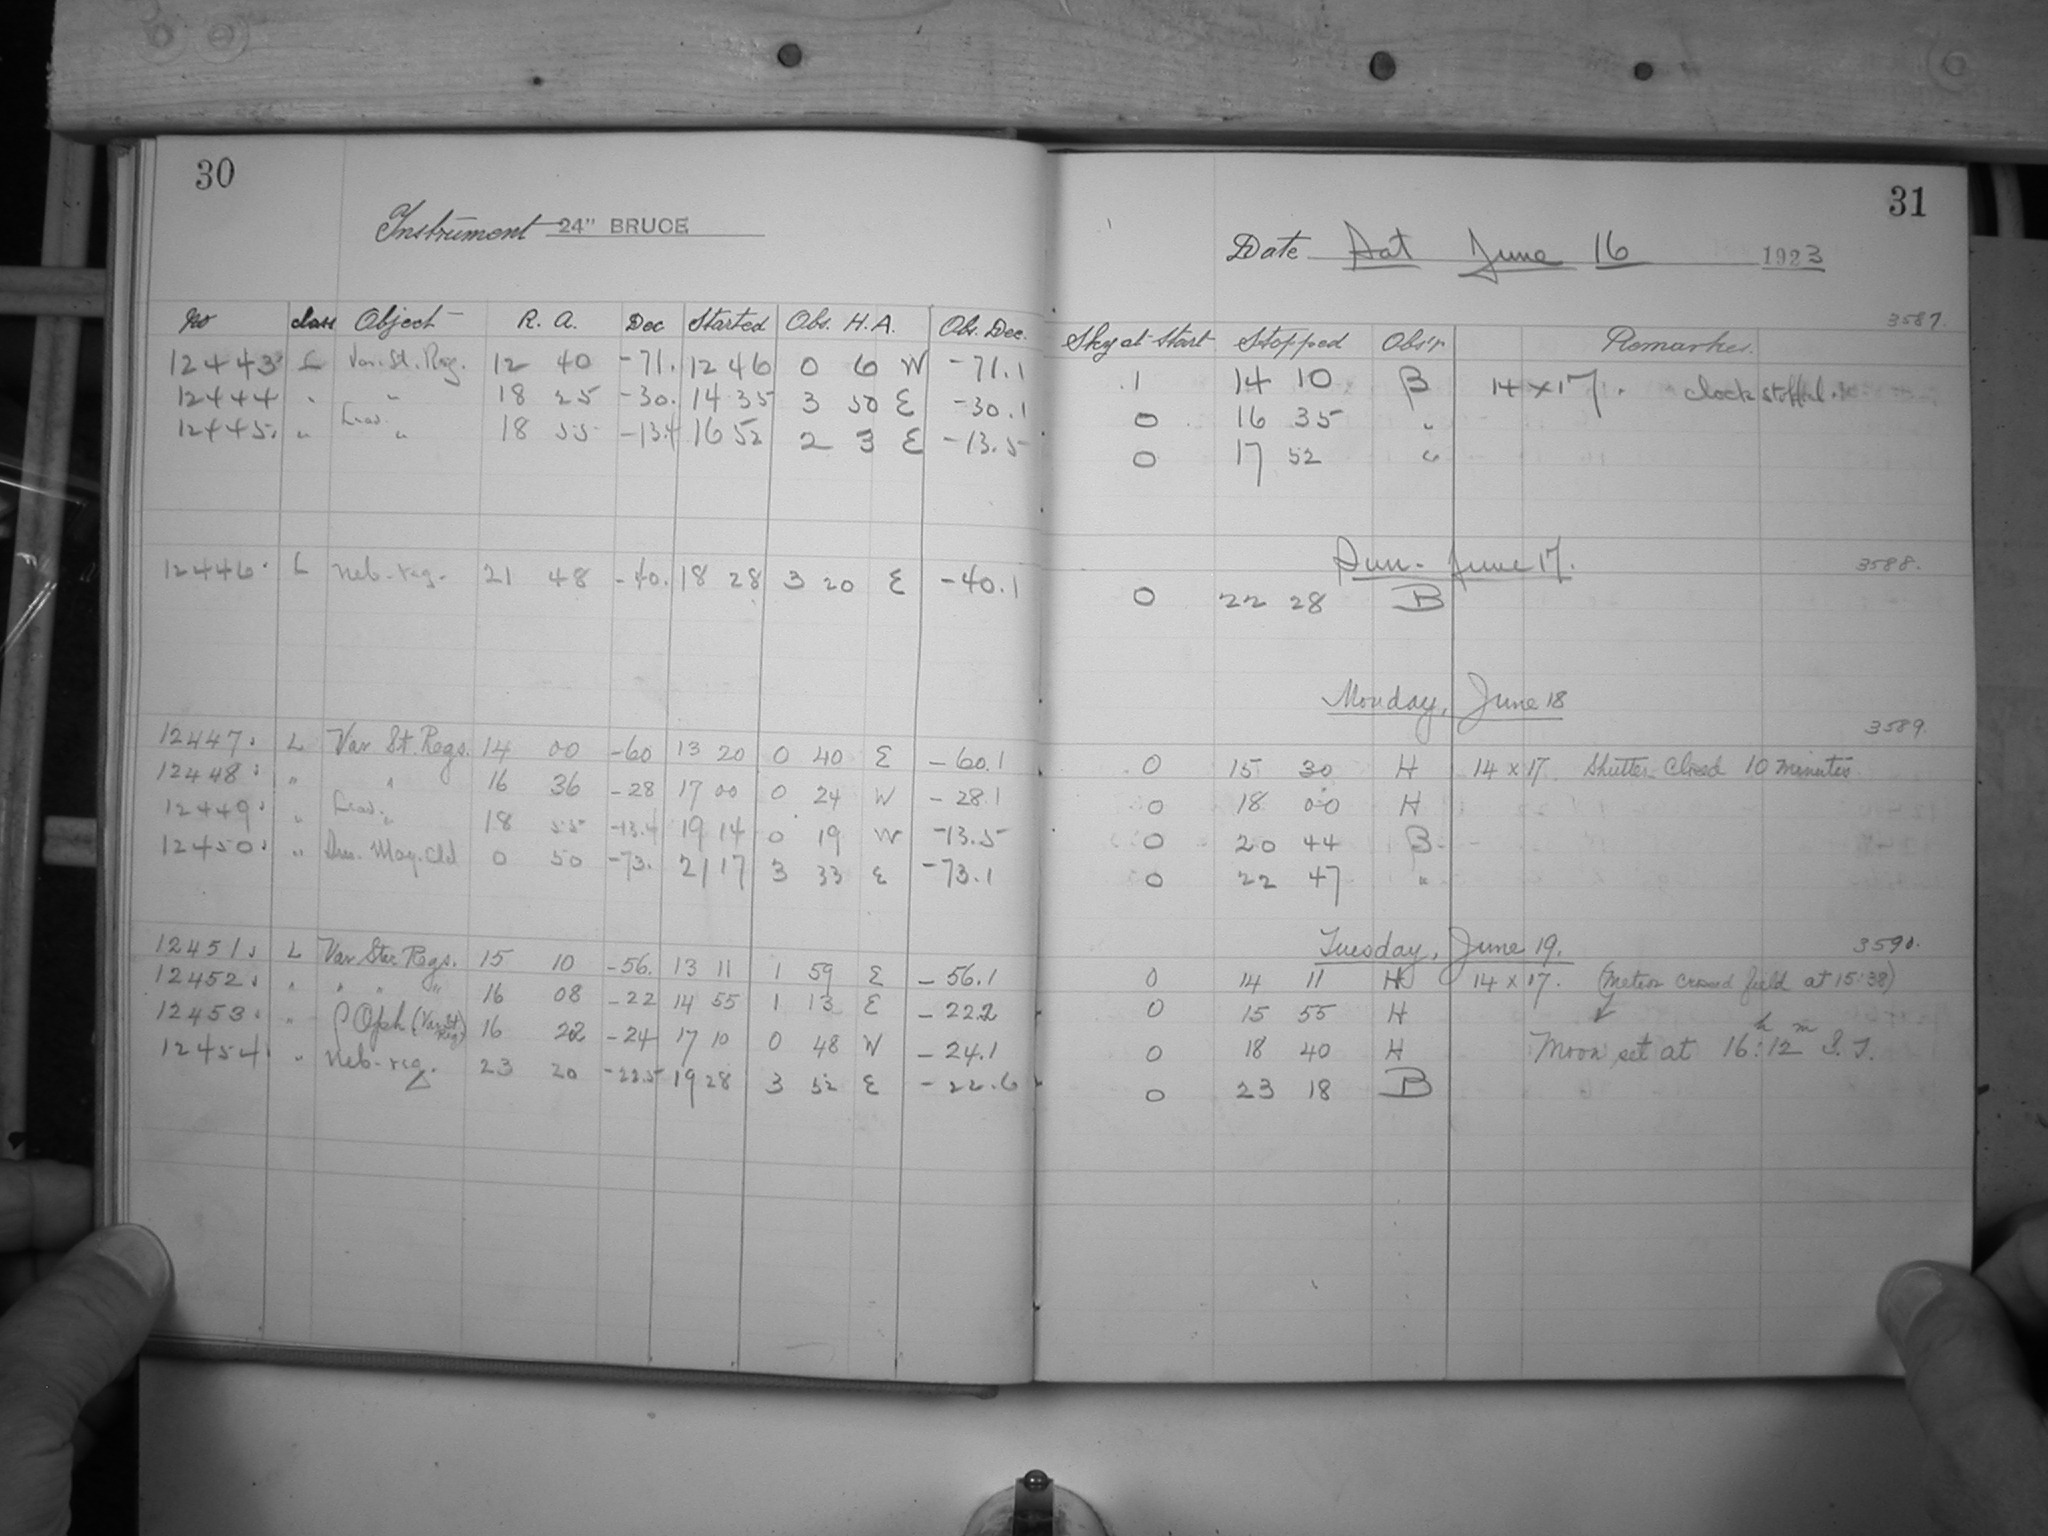 30
Instrument 24" BRUCE
No class Object R. A. Dec Started Obs. H. A. Obs. Dec.
12443 L Var. St. Reg. 12 40 -71. 12 46 0 6 W -71.1
12444 " " 18 25 -30. 14 35 3 50 E -30.1
12445 " " 18 55 -13.4 16 52 2 3 E -13.5
12446 L Neb-reg. 21 48 -40. 18 28 3 20 E -40.1
12447 L Var St. Regs. 14 00 -60 13 20 0 40 E -60.1
12448 " " 16 36 -28 17 00 0 24 W -28.1
12449 " " 18 55 -13.4 19 14 0 19 W -13.5
12450 " Mag. Cld 0 50 -73. 21 17 3 33 E -73.1
12451 L Var Star Regs. 15 10 -56. 13 11 1 59 E -56.1
12452 " " " " 16 08 -22 14 55 1 13 E -22.2
12453 " ρ Oph (Var St Reg) 16 22 -24 17 10 0 48 W -24.1
12454 " Neb-reg. 23 20 -22.5 19 28 3 52 E -22.6
31
Date Sat June 16 1923
3587.
Sky at Start Stopped Obs'r Remarks.
1 14 10 B 14 x 17. clock stopped.
0 16 35 "
0 17 52 "
Sun. June 17. 3588.
0 22 28 B
Monday, June 18
3589.
0 15 30 H 14 x 17. Shutter closed 10 minutes
0 18 00 H
0 20 44 B
0 22 47 "
Tuesday, June 19. 3590.
0 14 11 H 14 x 17. (Meteor crossed field at 15:38)
0 15 55 H
0 18 40 H Moon set at 16h:12m S.T.
0 23 18 B